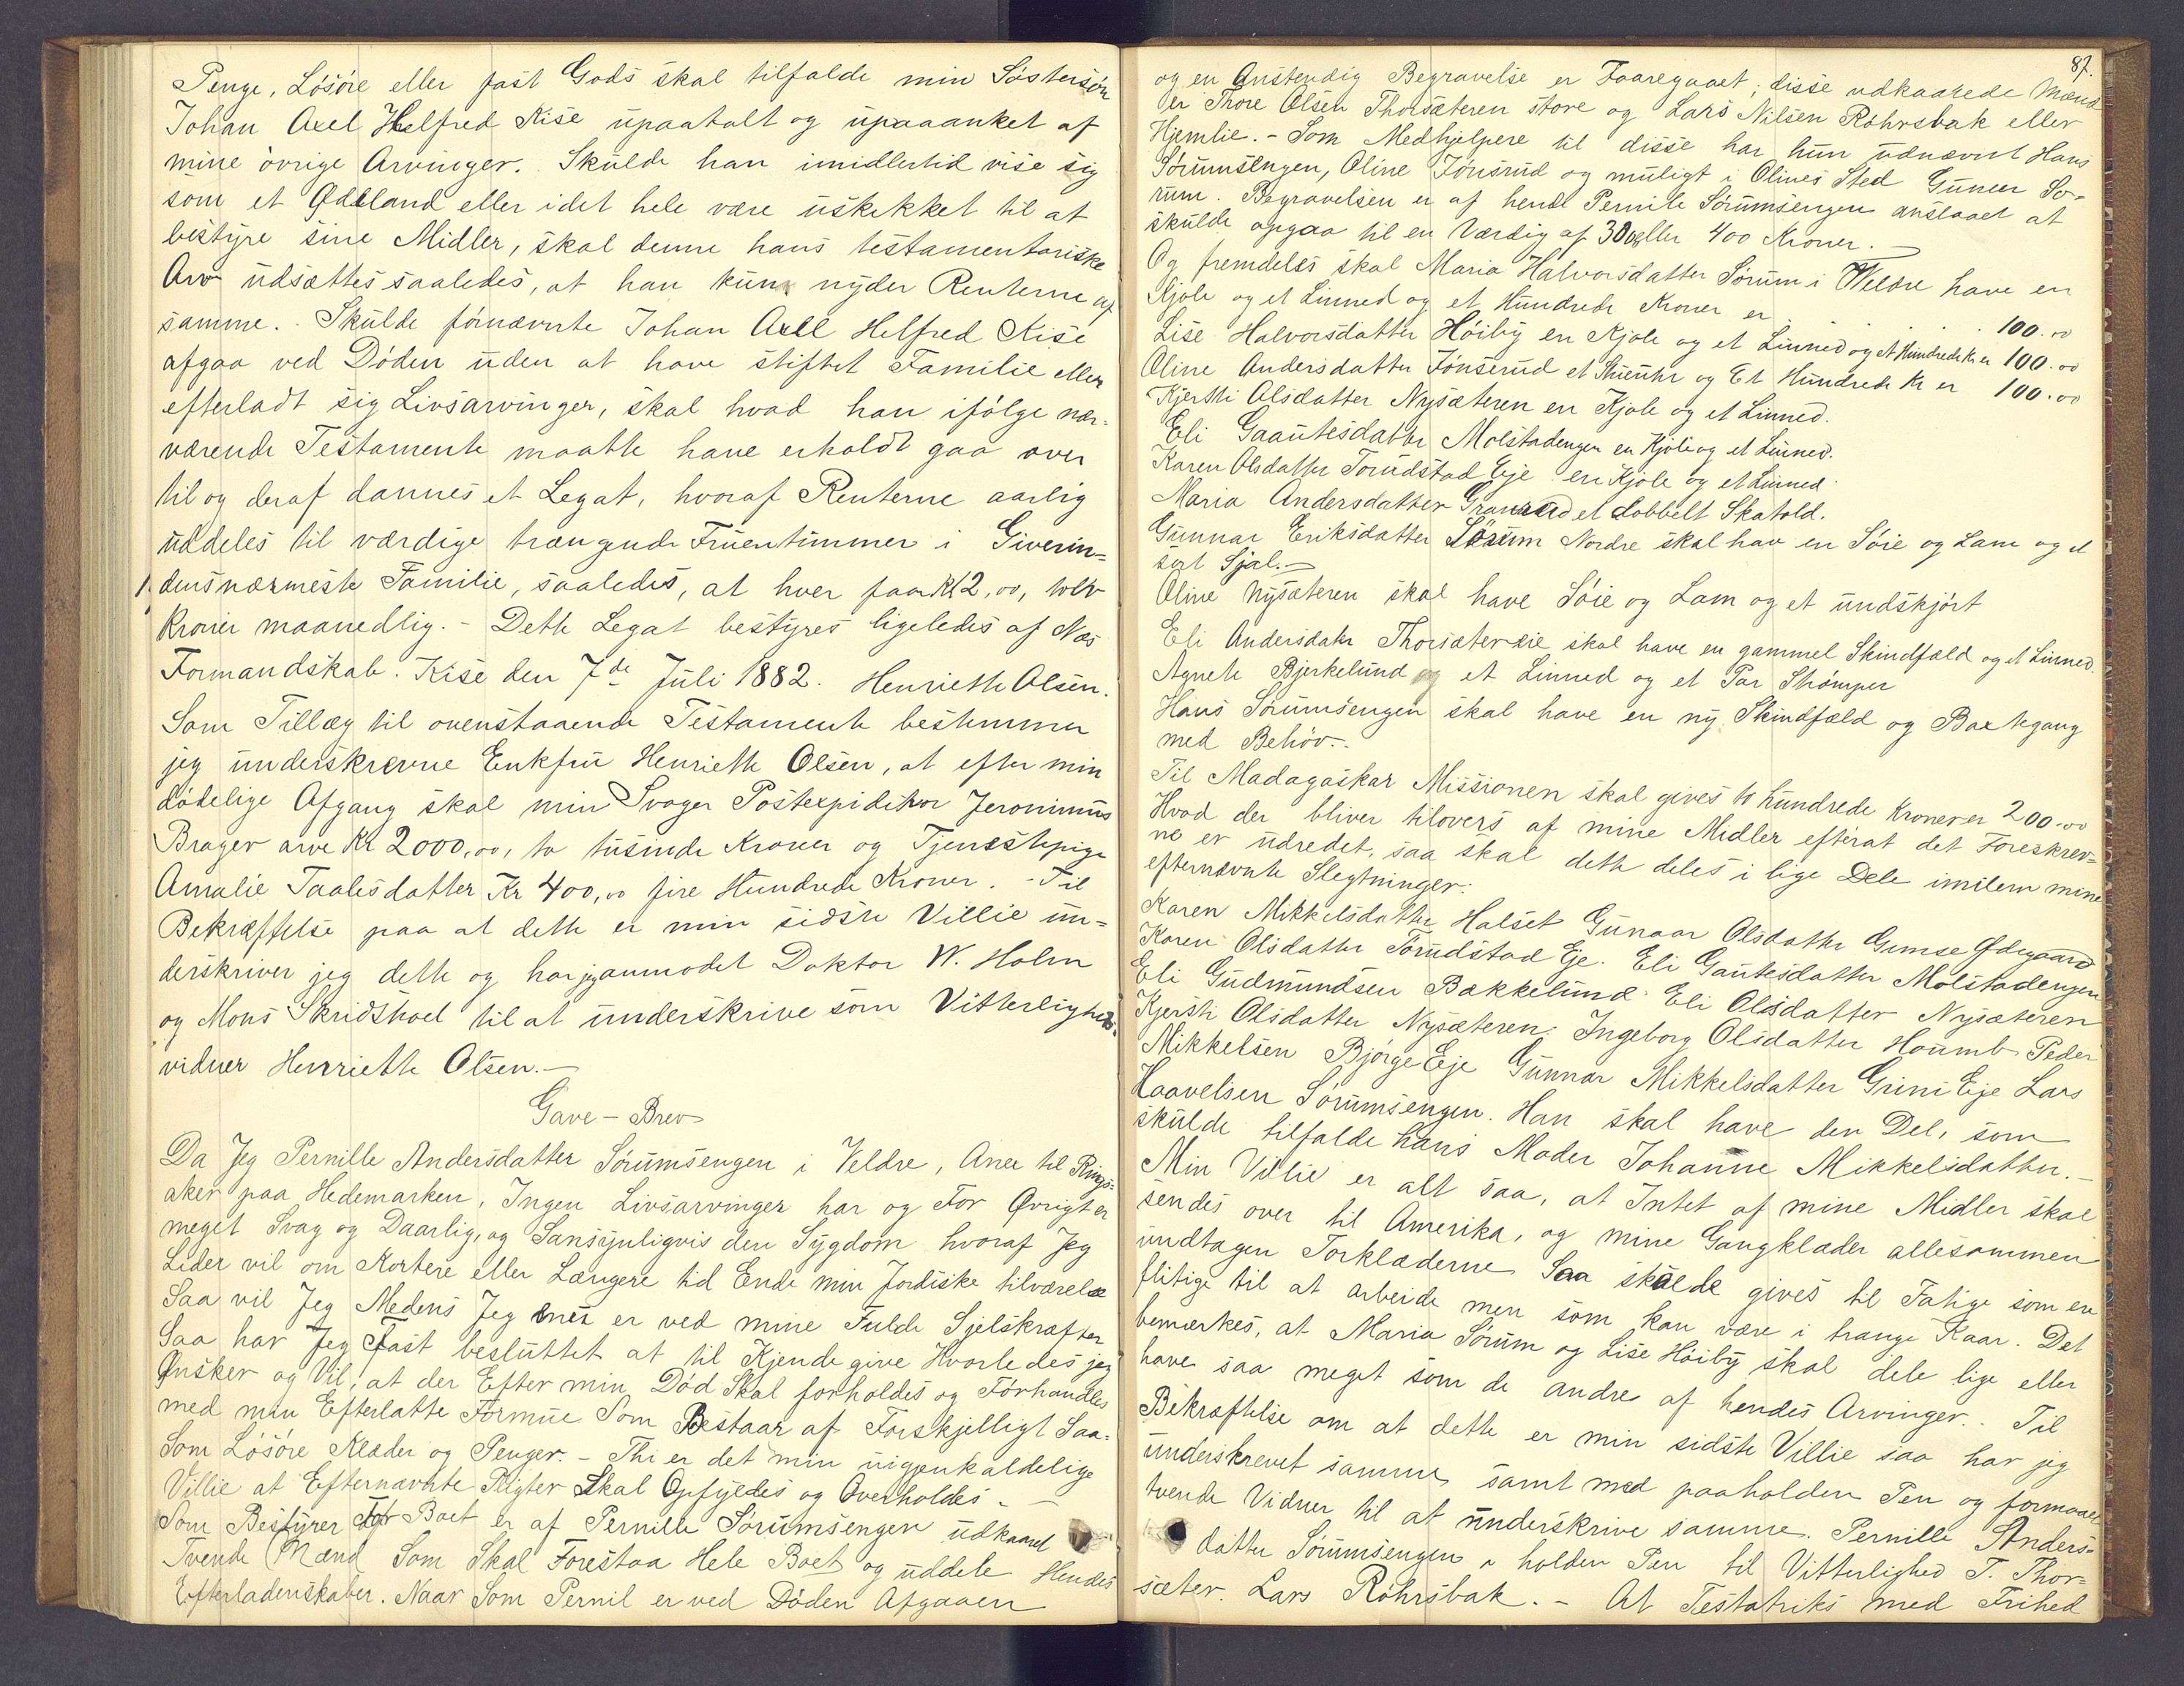 Penge, Løsøre eller fast Gods skal tilfalde min Søstersøn
Johan Axel Helfred Kise upaatalt og upaaanket af
mine øvrige Arvinger. Skulde han imidlertid vise sig
som et Ødeland eller i det hele være uskikket til at
bestyre sine Midler, skal denne hans testamentariske
Arv udsættes saaledes, at han kun nyder Renterne af
samme. Skulde førnævnte Johan Axel Helfred Kise
afgaa ved Døden uden at have stiftet Familie eller
efterladt sig Livsarvinger, skal hvad han ifølge nær-
værende Testamente maatte have erholdt gaa over
til og deraf dannes et Legat, hvoraf Renterne aarlig
uddeles til værdige trængende Fruentimmer i Giverin-
dens nærmeste Familie, saaledes, at hver faar Kr 12,00, tolv
Kroner maanedlig. - Dette Legat bestyres ligeledes af Næs
Formandskab. Kise den 7de Juli 1882. Henriette Olsen.
Som Tillæg til ovenstaaende Testamente bestemmer
jeg underskrevne Enkefru Henriette Olsen, at efter min
dødelige Afgang skal min Svoger Postexpiditør Jeronimus
Brager arve Kr 2000,00, to tusinde Kroner og Tjenestepige
Amalie Taalesdatter Kr 400,00 fire Hundrede Kroner. - Til
Bekræftelse paa at dette er min sidste Villie un-
derskriver jeg dette og har jeg anmodet Doktor W. Holm
og Mons Skridshoel til at underskrive som Vitterligheds-
vidner Henriette Olsen. -
Gave - Brev
Da Jeg Pernille Andersdatter Sørumsengen i Veldre, Anex til Rings-
aker paa Hedemarken, Ingen Livsarvinger har og For Øvrigt er
meget Svag og Daarlig, og Sansynligvis den Sygdom hvoraf Jeg
Lider vil om Kortere eller Længere tid Ende min Jordiske tilværelse
Saa vil Jeg Medens Jeg er ved mine Fulde Sjelskrafter
Saa har Jeg Fast besluttet at til Kjende give Hvorledes jeg
Ønsker og Vil, at der Efter min Død Skal forholdes og Forhandles
med min Efterlatte Formue Som Bestaar af Forskjelligt Saa-
Som Løsøre Klæder og Penger. - Thi er det min uigjenkaldelige
Villie at Efternævnte Pligter Skal Opfyldes og Overholdes. -
Som Bestyrer for Boet er af Pernille Sørumsengen udkaaret
Tvende Mænd Som Skal Forestaa Hele Boet og uddele Hendes
Efterladenskaber. Naar Som Pernil er ved Døden Afgaaen
87.
og en Anstendig Begravelse er Foregaaet; disse udkaarede Mænd
er Thore Olsen Thorsæteren store og Lars Nilsen Røhrsbak eller
Hjemlie. - Som Medhjelpere til disse har hun udnævnt Hans
Sørumsengen, Oline Jønsrud og muligt i Olines Sted Guneer So-
rum. Begravelsen er af hende Pernile Sørumsengen anslaaet at
skulde opgaa til en Værdig af 300 eller 400 Kroner. -
Og fremdeles skal Maria Halvorsdatter Sørum i Weldre have en
Kjole og et Linned og et Hundrede Kroner er . . . . 100.00
Lise Halvorsdatter Høiby en Kjole og et Linned og et Hundrede Kr er 100.00
Oline Andersdatter Jønserud et Stueuhr og Et Hundrede Kr er 100.00
Kjersti Olsdatter Nysæteren en Kjole og et Linned.
Eli Gaautesdatter Molstadengen en Kjole og et Linned.
Karen Olsdatter Torudstad Eje en Kjole og et Linned.
Maria Andersdatter Granrud et dobbelt Skatold.
Gunnar Eriksdatter Sørum Nordre skal hav en Søie og Lam og et
sort Sjal. -
Oline Nysæteren skal have Søie og Lam og et undskjørt
Eli Andersdater Thorsætereie skal have en gammel Skindfæld og et Linned.
Agnete Bjerkelund og et Linned og et Par Strømper
Hans Sørumsengen skal have en ny Skindfæld og Baxtegang
med Behøv.
Til Madagaskar Missionen skal gives to hundrede Kroner er 200.00
Hvad der bliver tilovers af mine Midler efterat det Foreskrev-
ne er udredet, saa skal dette deles i lige Dele imilem mine
efternævnte Slegtninger:
Karen Mikkelsdatter Halset Gunaar Olsdatter Gimse Ødegaard
Karen Olsdatter Torudstad Eje. Eli Gautesdatter Molstadengen
Eli Gudmundsen Bakkelund. Eli Olsdatter Nysæteren
Kjersti Olsdatter Nysæteren. Ingeborg Olsdatter Houmb Peder
Mikkelsen Bjørge Eje Gunnar Mikkelsdatter Grini Eje Lars
Haavelsen Sørumsengen. Han skal have den Del, som
skulde tilfalde hans Moder Johanne Mikkelsdatter. -
Min Vilie er alt saa, at Intet af mine Midler skal
sendes over til Amerika, og mine Gangklæder allesammen
undtagen Torklæderne Saa skulde gives til Fatige som er
flitige til at arbeide men som kan være i trange Kaar. Det
bemærkes, at Maria Sørum og Lise Høiby skal dele lige eller
have saa meget som de andre af hendes Arvinger. Til
Bekræftelse om at dette er min sidste Villie saa har jeg
underskrevet samme samt med paaholden Pen og formaaet
tvende Vidner til at underskrive samme. Pernille Anders-
datter Sørumsengen i holden Pen til Vitterlighed T. Thor-
sæter. Lars Røhrsbak. - At Testatriks med Frihed